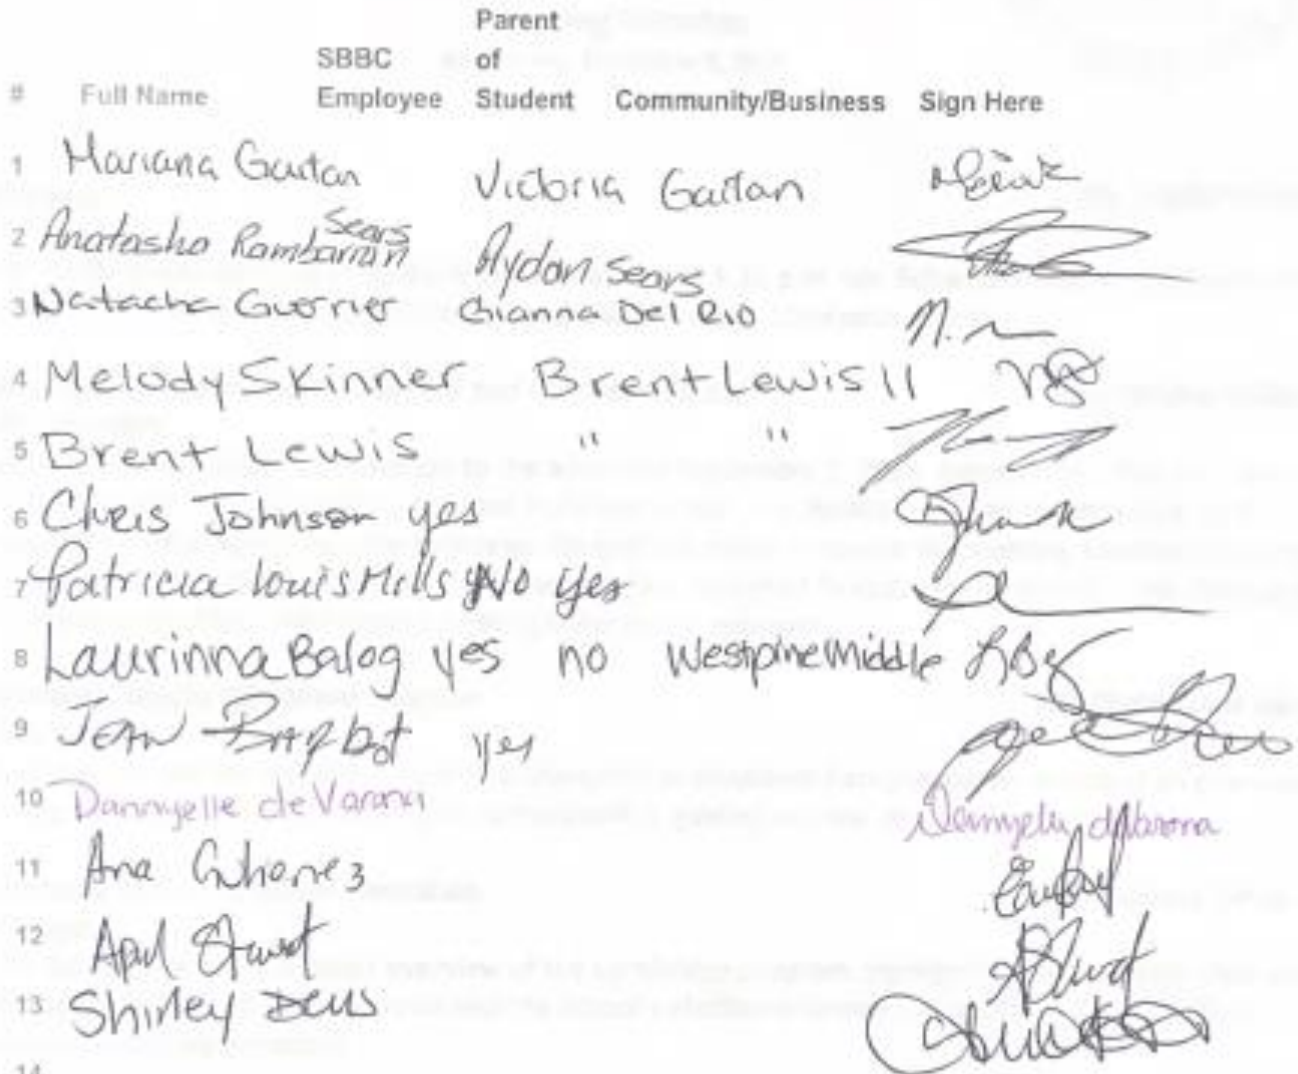 Parent
SBBC of
# Full Name Employee Student Community/Business Sign Here
1 Mariana Gaitan Victoria Gaitan
Sears
2 Anatasha Rambarran Aydan Sears
3 Natacha Guerrier Gianna Del Rio
4 Melody Skinner Brent Lewis II MS
5 Brent Lewis " "
6 Chris Johnson yes
7 Patricia Louis Mills No yes
8 Laurinna Balog yes no Westpine Middle
9 Jean Barbot yes
10 Dannyelle de Varona Dannyelle deVarona
11 Ana
12 April Stewart
13 Shirley Deus
14